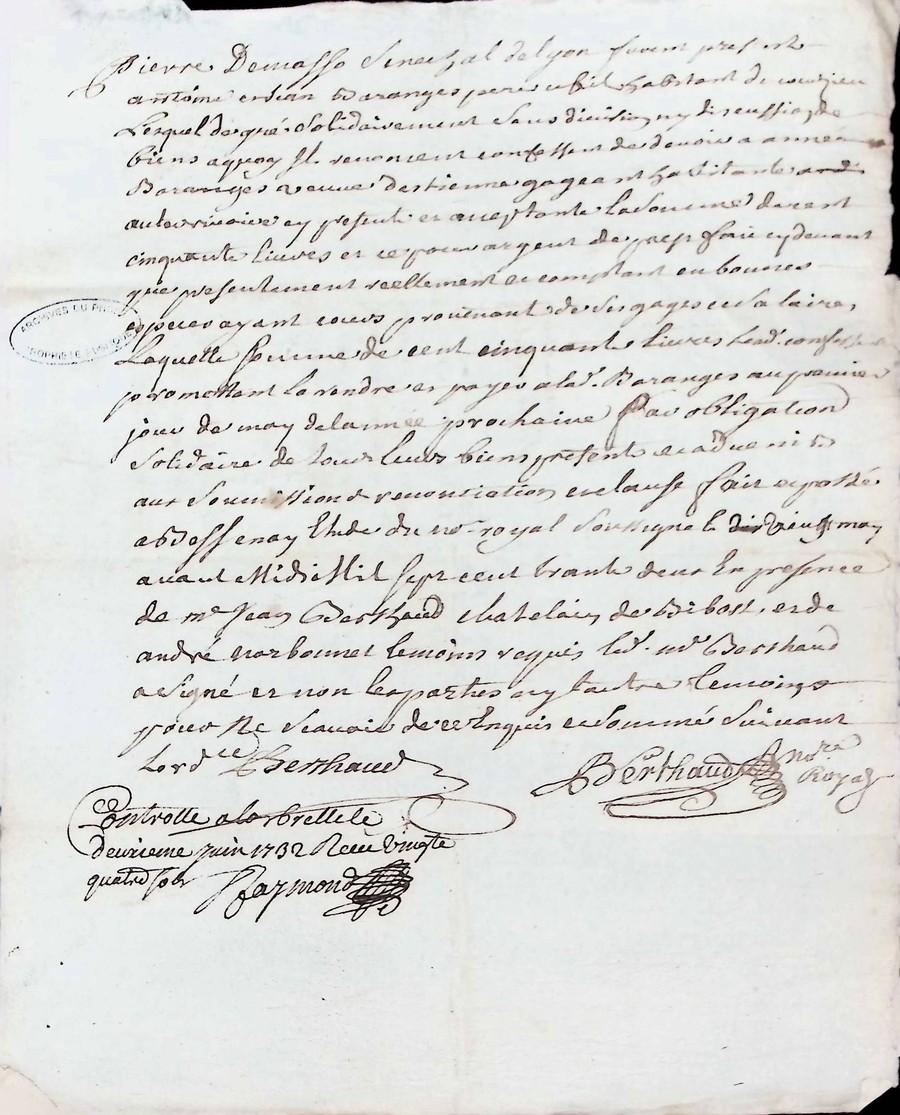 Pierre Demasso Senechal delyon furent present
antoine et jean Baranges pere et fil habitant de couzieu
Lesquel de gré solidairement sans division ny discussion de
biens a quoy Il renoncent confessent de devoir a année
Baranges veuve destienne gageant habitante
cy presente et aceptante la somme de cent
cinquante livres et ce pour argent de prest fait cy devant
que presentement reellement et comptant en bonnes
especes ayant cours provenant de ses gages et salaires
Laquelle somme de cent cinquante livres Lesd. confessent
promettent la rendre et payer a lad. Baranges au premier
jour de may de lannée prochaine Par obligation
solidaire de tous leurs biens present et advenir
aux soumissions renonciation et clause fait et passé
a Bessenay Etude du no.re royal soussigné le may
avant Midi Mil sept cent trante deux En presence
de me Jean Berthaud chatelain de Bibost, et de
andré narbonnet temoins requis led. me Berthaud
a signé et non les parties ny lautre temoins
pour Ne scavoir de ce Enquis et sommé suivant
Lord.ce Berthaud
Berthaud no.re Royal
Controlle a larbrelle le
deuxieme juin 1732 Receu Vingte
quatre sols Raymond
ARCHIVES DU
PROPRIÉTÉ PUBLIQUE